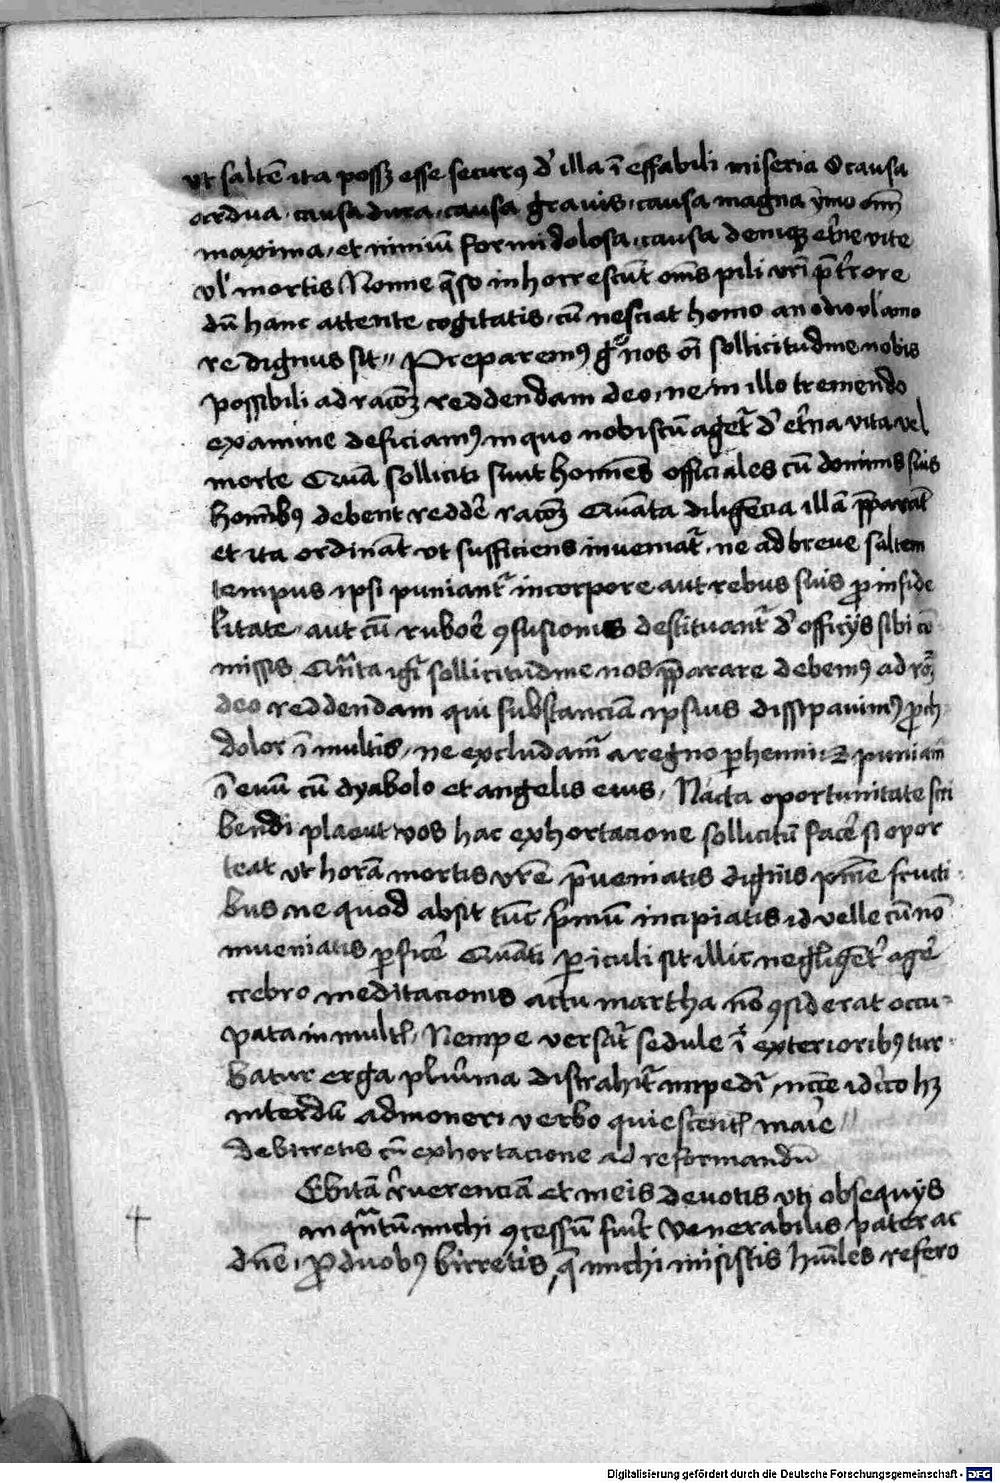 ut saltē ita possʒ esse securꝰ d' illa ī effabili miseria O causa
ardua causa dura causa gravis causa magna ymo om̄
maxima et nimiū formidolosa causa deniqʒ et'ne vite
vl' mortis Nonne q̄so in horrescūt om̄s pili vr̄i p̄ t'rore
dū hanc attente cogitatis cū nesciat homo an odio vl' amo
re dignus sit // Preparemꝰ gͦ nos oī sollicitudine nobis
possibili ad racōʒ reddendam deo ne in illo tremendo
examine deficiamꝰ in quo nobiscū aget' d' et'na vita vel
morte Quā solliciti sunt homīes officiales cū dominis suis
homībꝰ debent redde' racōʒ Quāta diligēcia illā p̄parāt
et ita ordināt ut sufficiens inveniat' ne ad breve saltem
tempus ipsi puniant' in corpore aut rebus suis ꝓ infide
litate aut cū rubore ꝯfusionis destituant' d' officijs sibi cō
missis Qn̄ta igit' sollicitudine nos p̄parare debemꝰ ad rōʒ
deo reddendam qui substanciā ipsius dissipavimꝰ ꝓch
dolor ī multis ne excludam̄ a regno ꝑhenni ⁊ puniam̄
ī evū cū dyabolo et angelis eius Nacta oportunitate scri
bendi placuit vos hac exhortacione sollicitū face' si opor
teat ut horā mortis vr̄e p̄veniatis dignis pn̄ie fructi
bus ne quod absit tūc p'mū incipiatis id velle cū nō
inveniatis ꝑfice' Quāti ꝑiculi sit illic negligēt' age'
crebro meditacionis actu martha nō ꝯsiderat occu
pata in mult' Nempe versat' sedule ī exterioribꝰ tur
batur erga plurima distrahit' impedi' n̄cc̄e id'co hʒ
interdū admoneri verbo quiescent' marie //
de birretis cū exhortacione ad reformandū
Ebitā r'verenciā et meis devotis uti obsequijs
in qn̄tū michi ꝯcessū fu'it Venerabilis pater ac
dn̄e ꝓ duobꝰ birretis q̄ michi misistis hūiles refero
4
Digitalisierung gefördert durch die Deutsche Forschungsgemeinschaft - DFG